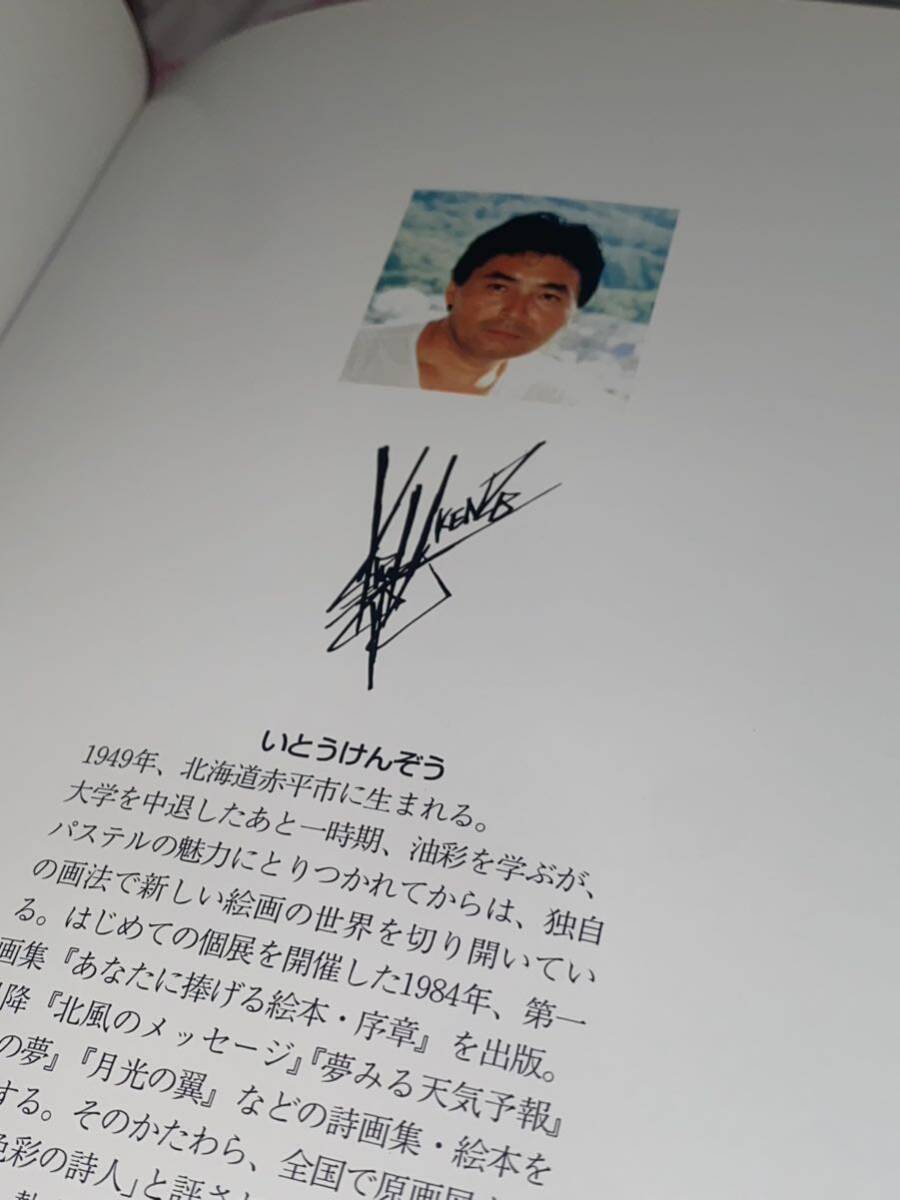 KENZO
いとうけんぞう
1949年、北海道赤平市に生まれる。
大学を中退したあと一時期、油彩を学ぶが、
パステルの魅力にとりつかれてからは、独自
の画法で新しい絵画の世界を切り開いてい
る。はじめての個展を開催した1984年、第一
画集『あなたに捧げる絵本・序章』を出版。
降『北風のメッセージ』『夢みる天気予報』
の夢』『月光の翼』などの詩画集・絵本を
する。そのかたわら、全国で原画展
色彩の詩人」と評され